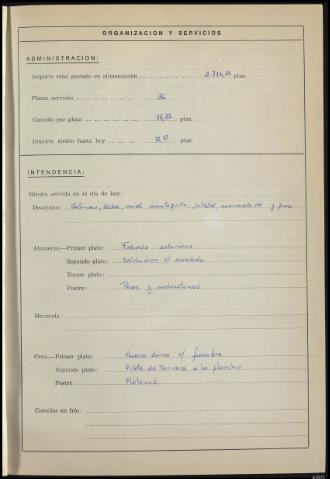 ORGANIZACION Y SERVICIOS
ADMINISTRACION:
Importe total gastado en alimentación ... ptas.
Plazas servidas ... 36
Gastado por plaza ... ptas.
Importe medio hasta hoy ... ptas.
INTENDENCIA:
Minuta servida en el día de hoy:
Desayuno: leche, miel mantequilla, galletas, mermelada y pan
Almuerzo—Primer plato: Fabada asturiana
Segundo plato: Salchichas c/ ensalada
Tercer plato:
Postre: Peras y melocotones
Merienda:
Cena.—Primer plato: c/ fiambre
Segundo plato: Filete de ternera a la plancha
Postre:
Comidas en frío: